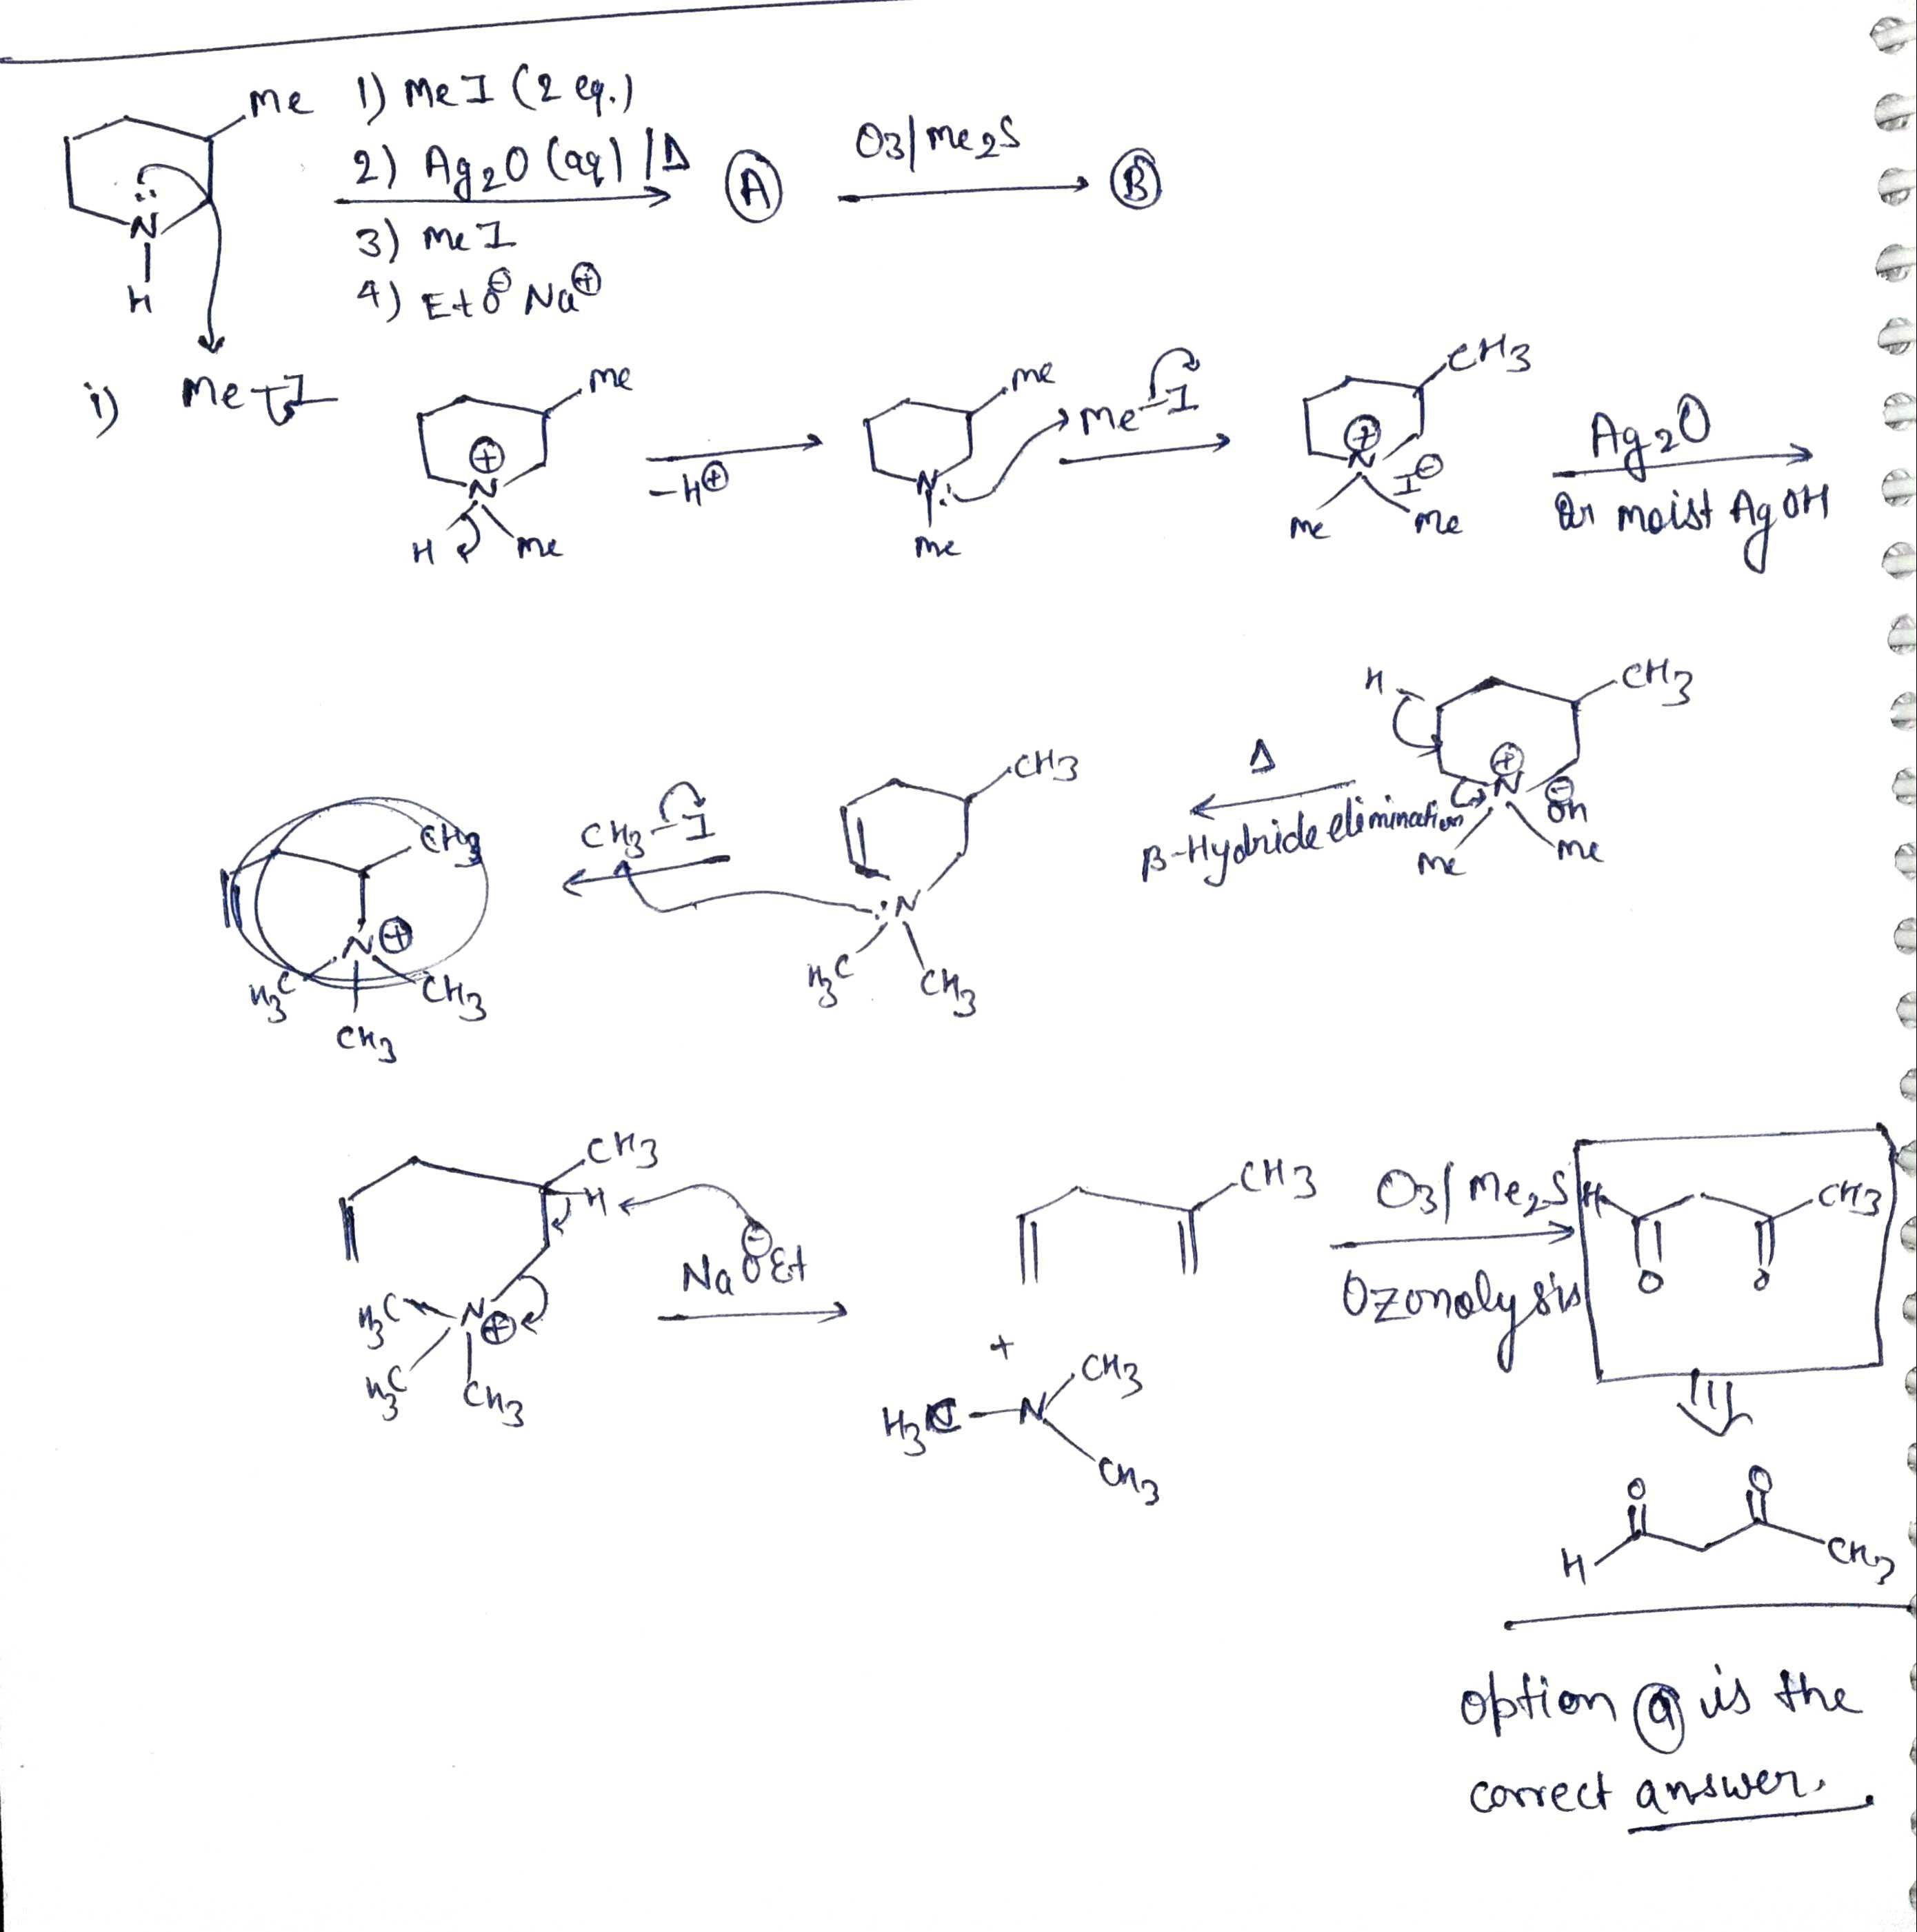 Me 1) MeI (2 eq.)
2) Ag2O (aq) / Δ A O3/Me2S B
N 3) MeI
H 4) EtO⊖ Na⊕
i) Me-I
Me
⊕
N
H Me
-H⊕
Me
N:
Me
Me-I
CH3
⊕
N I⊖
Me Me
Ag2O
Or moist AgOH
H CH3
⊕
N ⊖OH
Me Me
Δ
β-Hydride elimination
CH3
:N
H3C CH3
CH3-I
CH3
N⊕
H3C CH3
CH3
CH3
H
H3C N⊕
H3C CH3
⊖
NaOEt
CH3
+
H3C-N CH3
CH3
O3/Me2S
Ozonolysis
H CH3
O O
O O
H CH3
option a is the
correct answer.